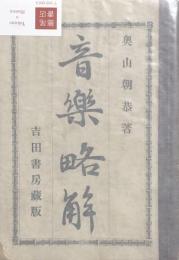 奥山朝恭著
音樂略解
吉田書房藏版